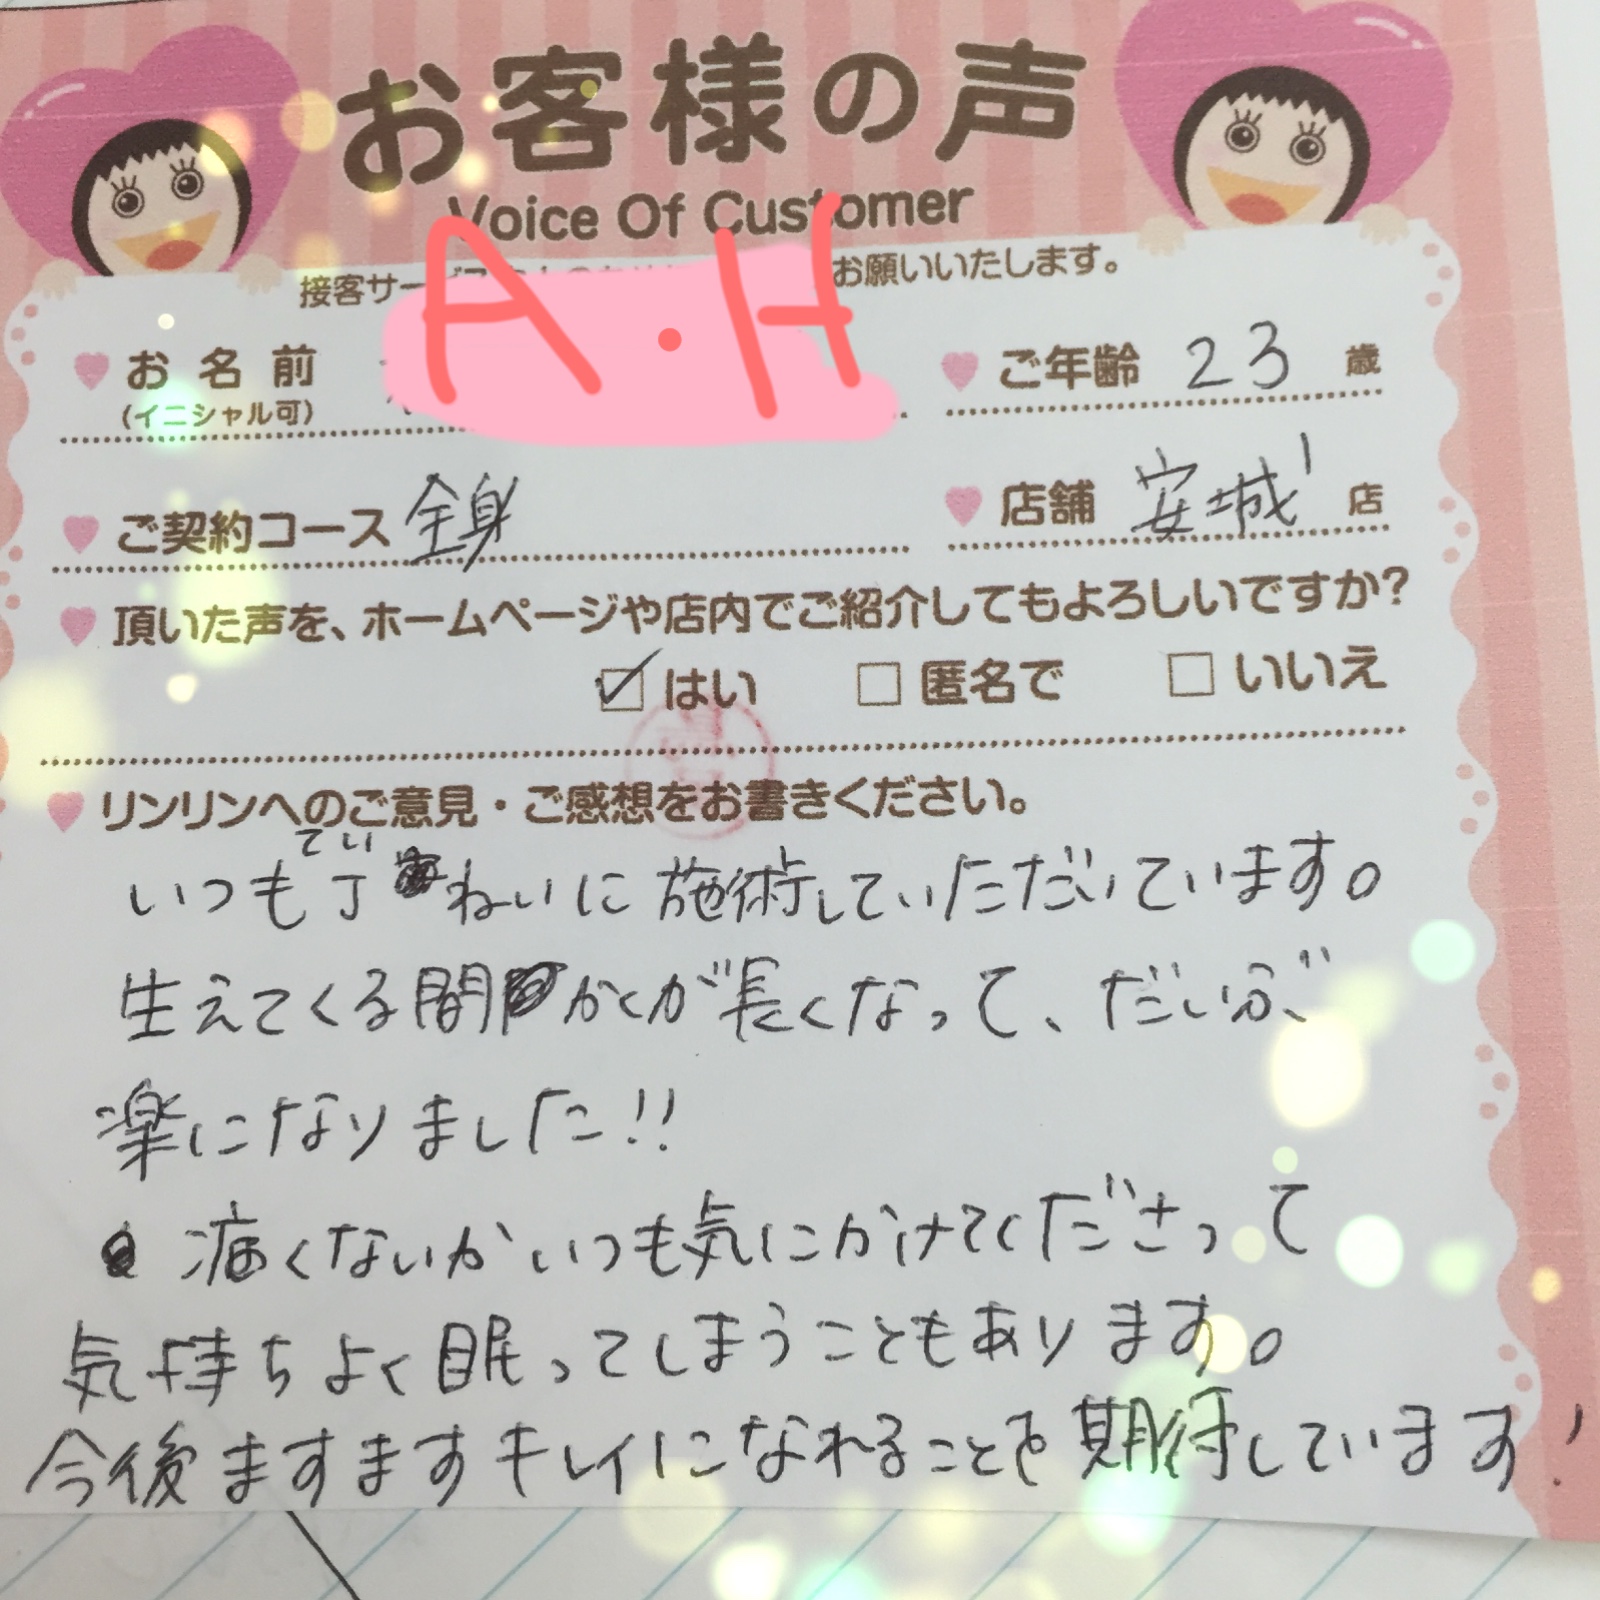 お客様の声
Voice Of Customer
接客サー お願いいたします。
A・H
お名前 ご年齢 23 歳
(イニシャル可)
ご契約コース 全身 店舗 安城 店
頂いた声を、ホームページや店内でご紹介してもよろしいですか?
はい 匿名で いいえ
リンリンへのご意見・ご感想をお書きください。
てい
いつも丁ねいに施術していただいています。
生えてくる間かくが長くなって、だいぶ
楽になりました!!
痛くないかいつも気にかけてくださって
気持ちよく眠ってしまうこともあります。
今後ますますキレイになれることを期待しています!